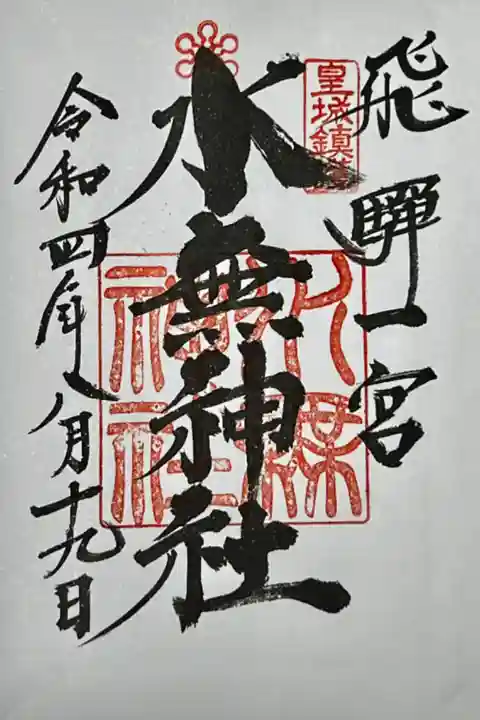 飛騨一宮
皇城鎮護
水無神社
水無神社
令和四年八月十九日